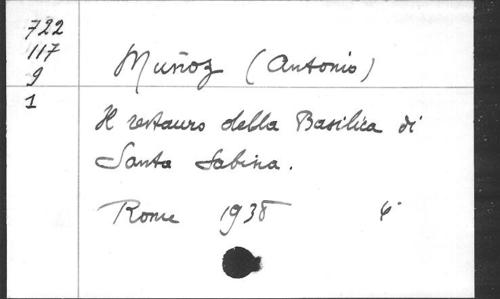 722
117
9
1
Muñoz (Antonio)
Il restauro della Basilica di
Santa Sabina.
Rome 1938